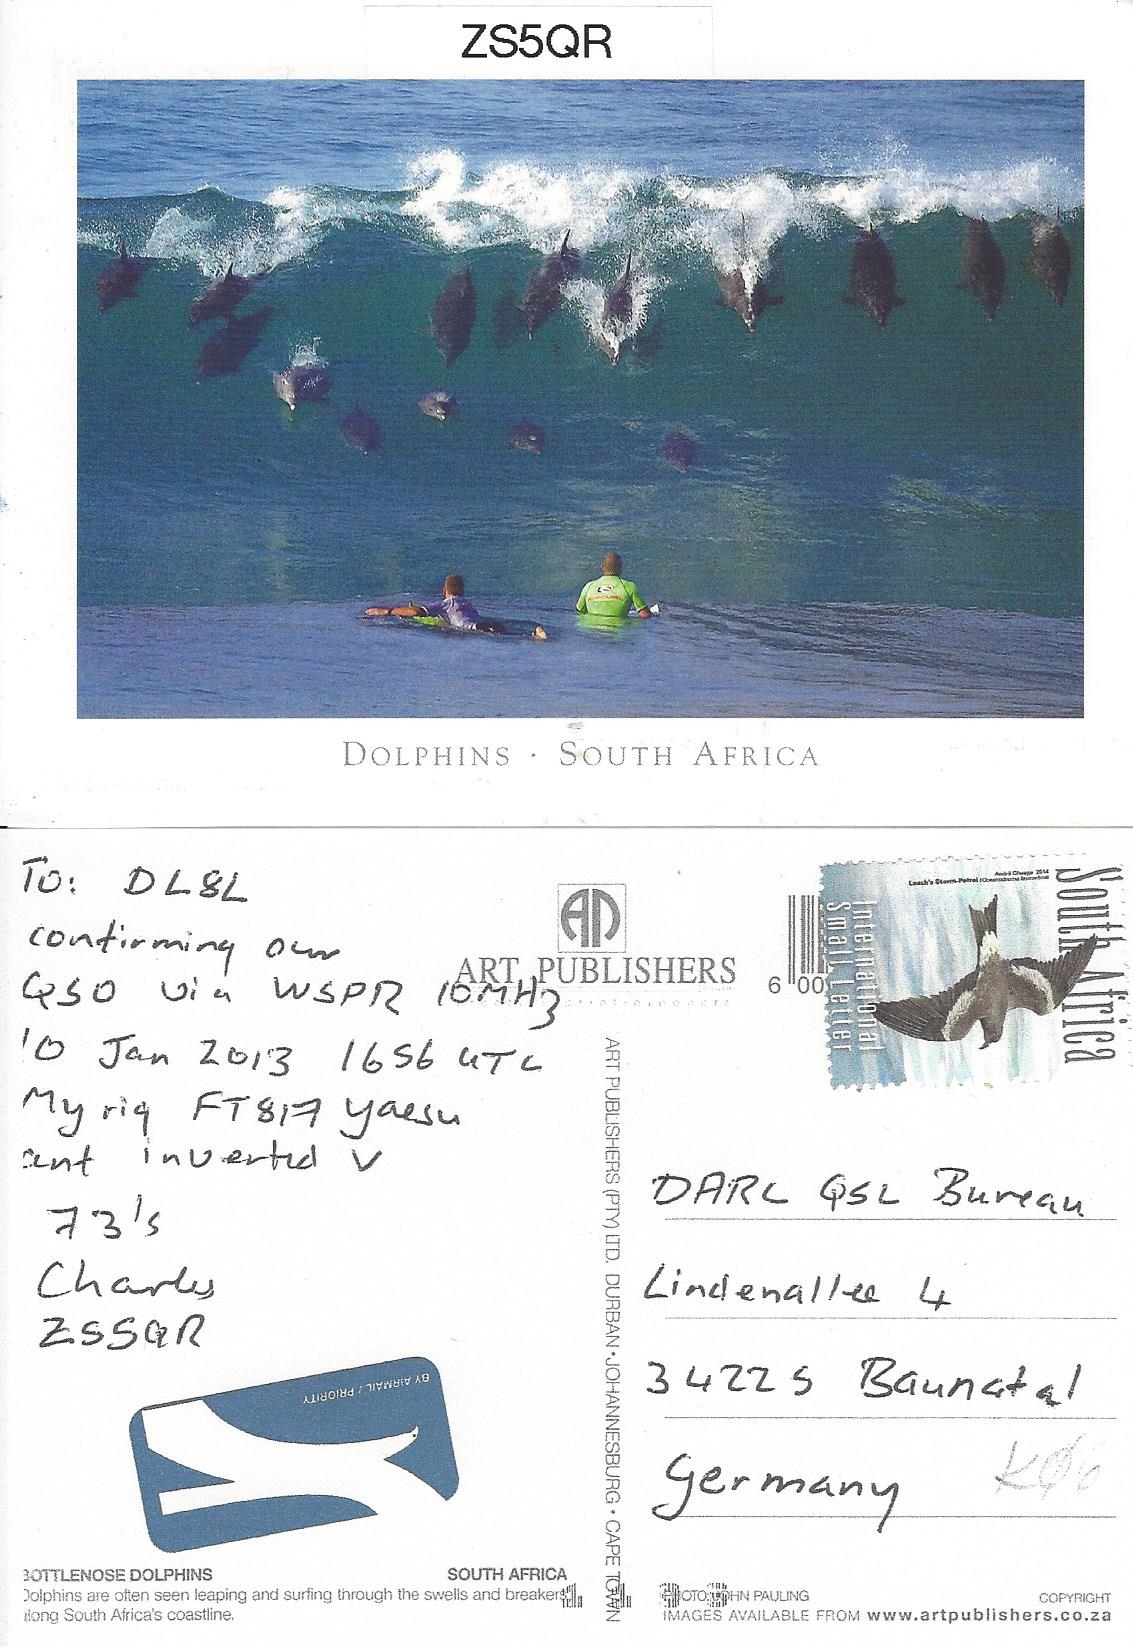 ZS5QR
DOLPHINS · SOUTH AFRICA
To: DL8L
confirming our
QSO via WSPR 10MHz
10 Jan 2013 1656 UTC
My rig FT817 Yaesu
ant inverted V
73's
Charles
ZS5QR
BY AIRMAIL / PRIORITY
BOTTLENOSE DOLPHINS SOUTH AFRICA
Dolphins are often seen leaping and surfing through the swells and breakers
along South Africa's coastline.
ART PUBLISHERS
ART PUBLISHERS (PTY) LTD. DURBAN • JOHANNESBURG • CAPE TOWN
6 00
André Olwage 2014
Leach's Storm-Petrel (Oceanodroma leucorhoa)
International
Small Letter
South Africa
DARC QSL Bureau
Lindenallee 4
34225 Baunatal
Germany
PHOTO: JOHN PAULING COPYRIGHT
IMAGES AVAILABLE FROM www.artpublishers.co.za